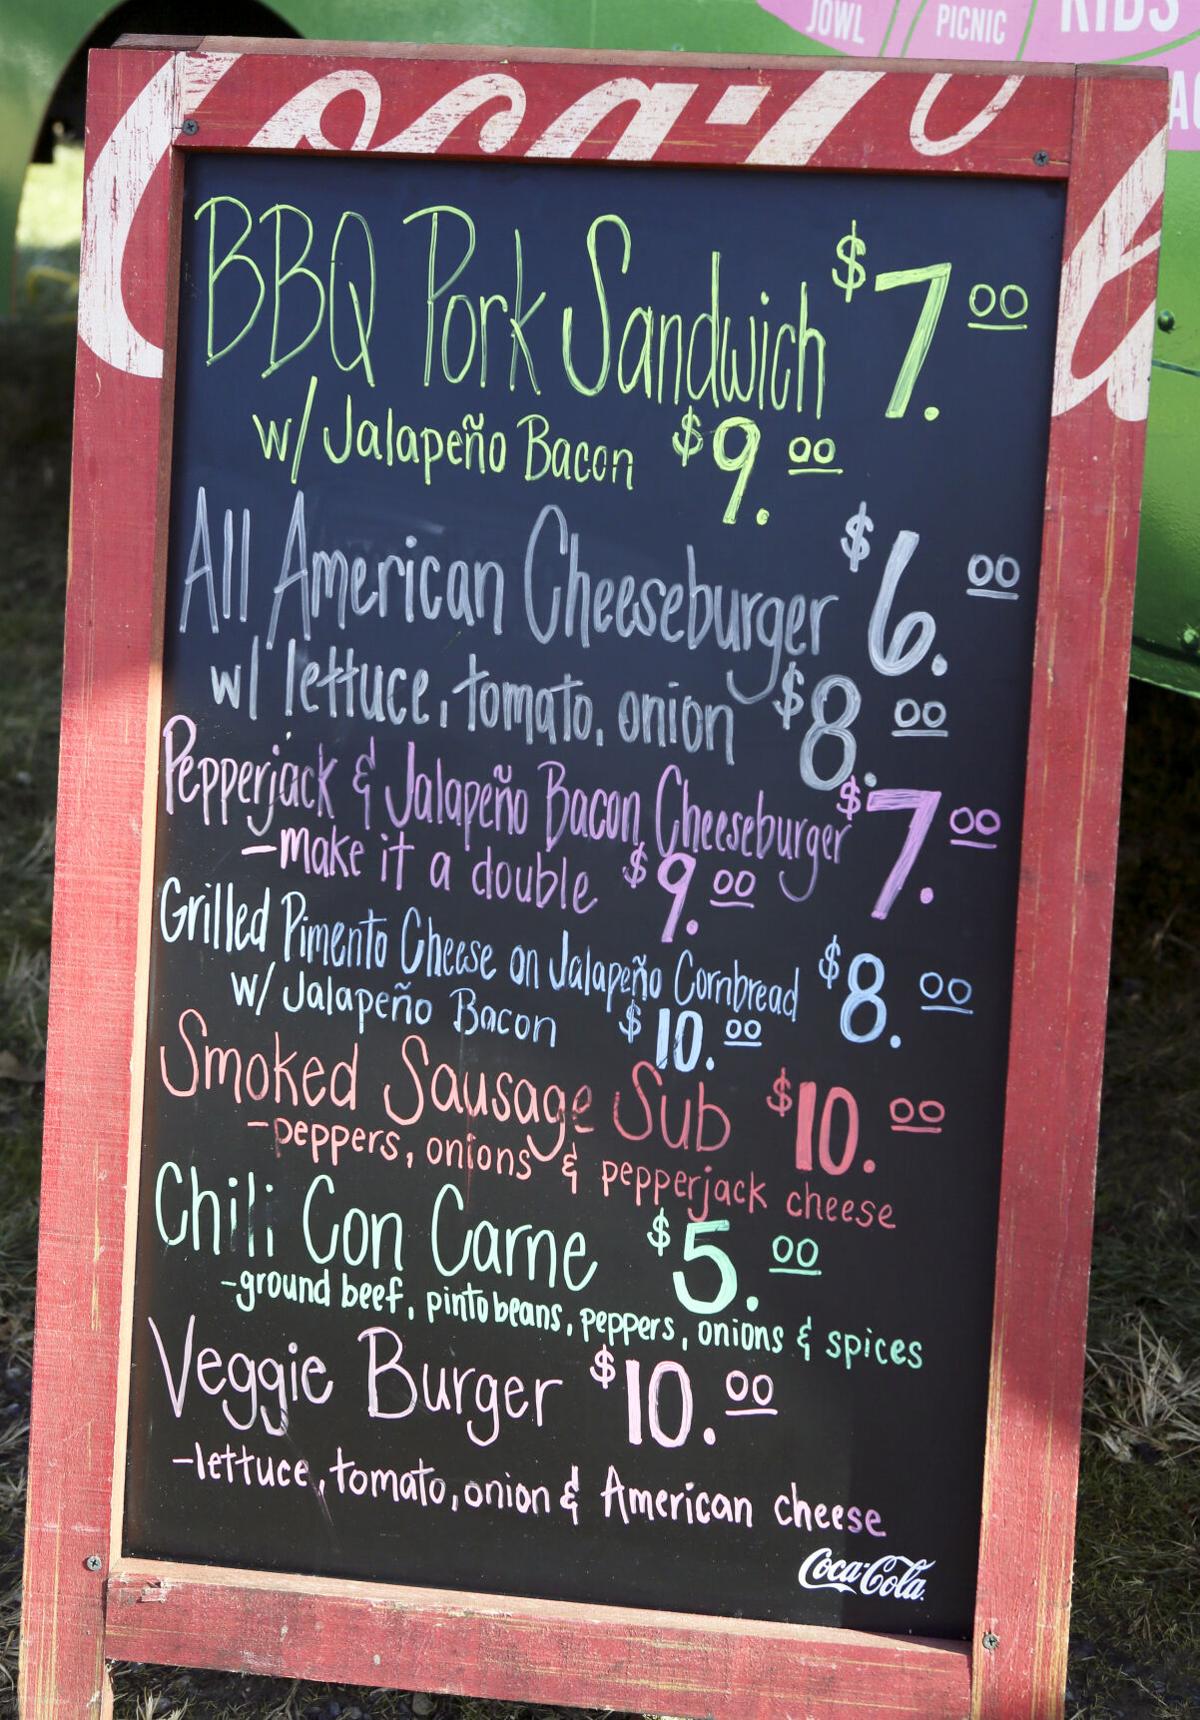 JOWL
PICNIC
KIDS
Coca-Co
BBQ Pork Sandwich $7.00
w/ Jalapeño Bacon $9.00
All American Cheeseburger $6.00
w/ lettuce, tomato, onion $8.00
Pepperjack & Jalapeño Bacon Cheeseburger $7.00
-make it a double $9.00
Grilled Pimento Cheese on Jalapeño Cornbread $8.00
w/ Jalapeño Bacon $10.00
Smoked Sausage Sub $10.00
-peppers, onions & pepperjack cheese
Chili Con Carne $5.00
-ground beef, pinto beans, peppers, onions & spices
Veggie Burger $10.00
-lettuce, tomato, onion & American cheese
Coca-Cola